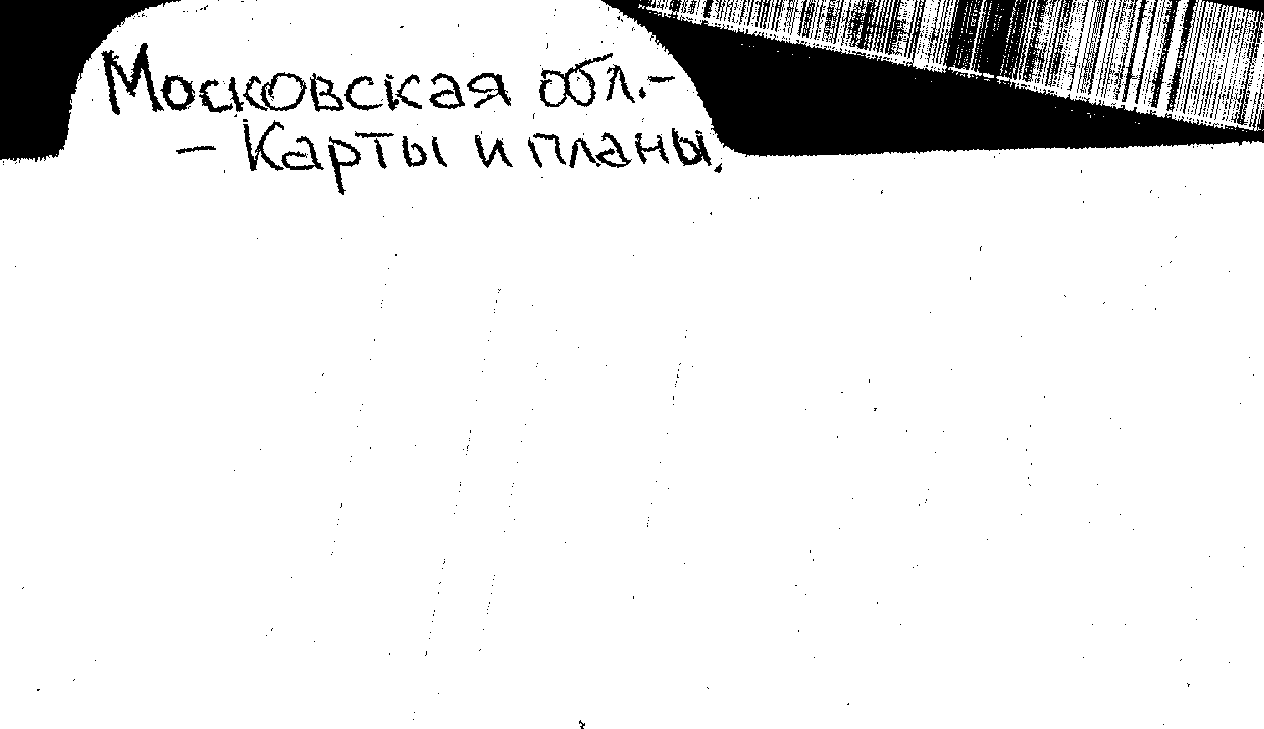 Московская обл.-
- Карты и планы.